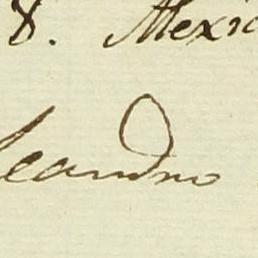 8. Mexic
Leandro